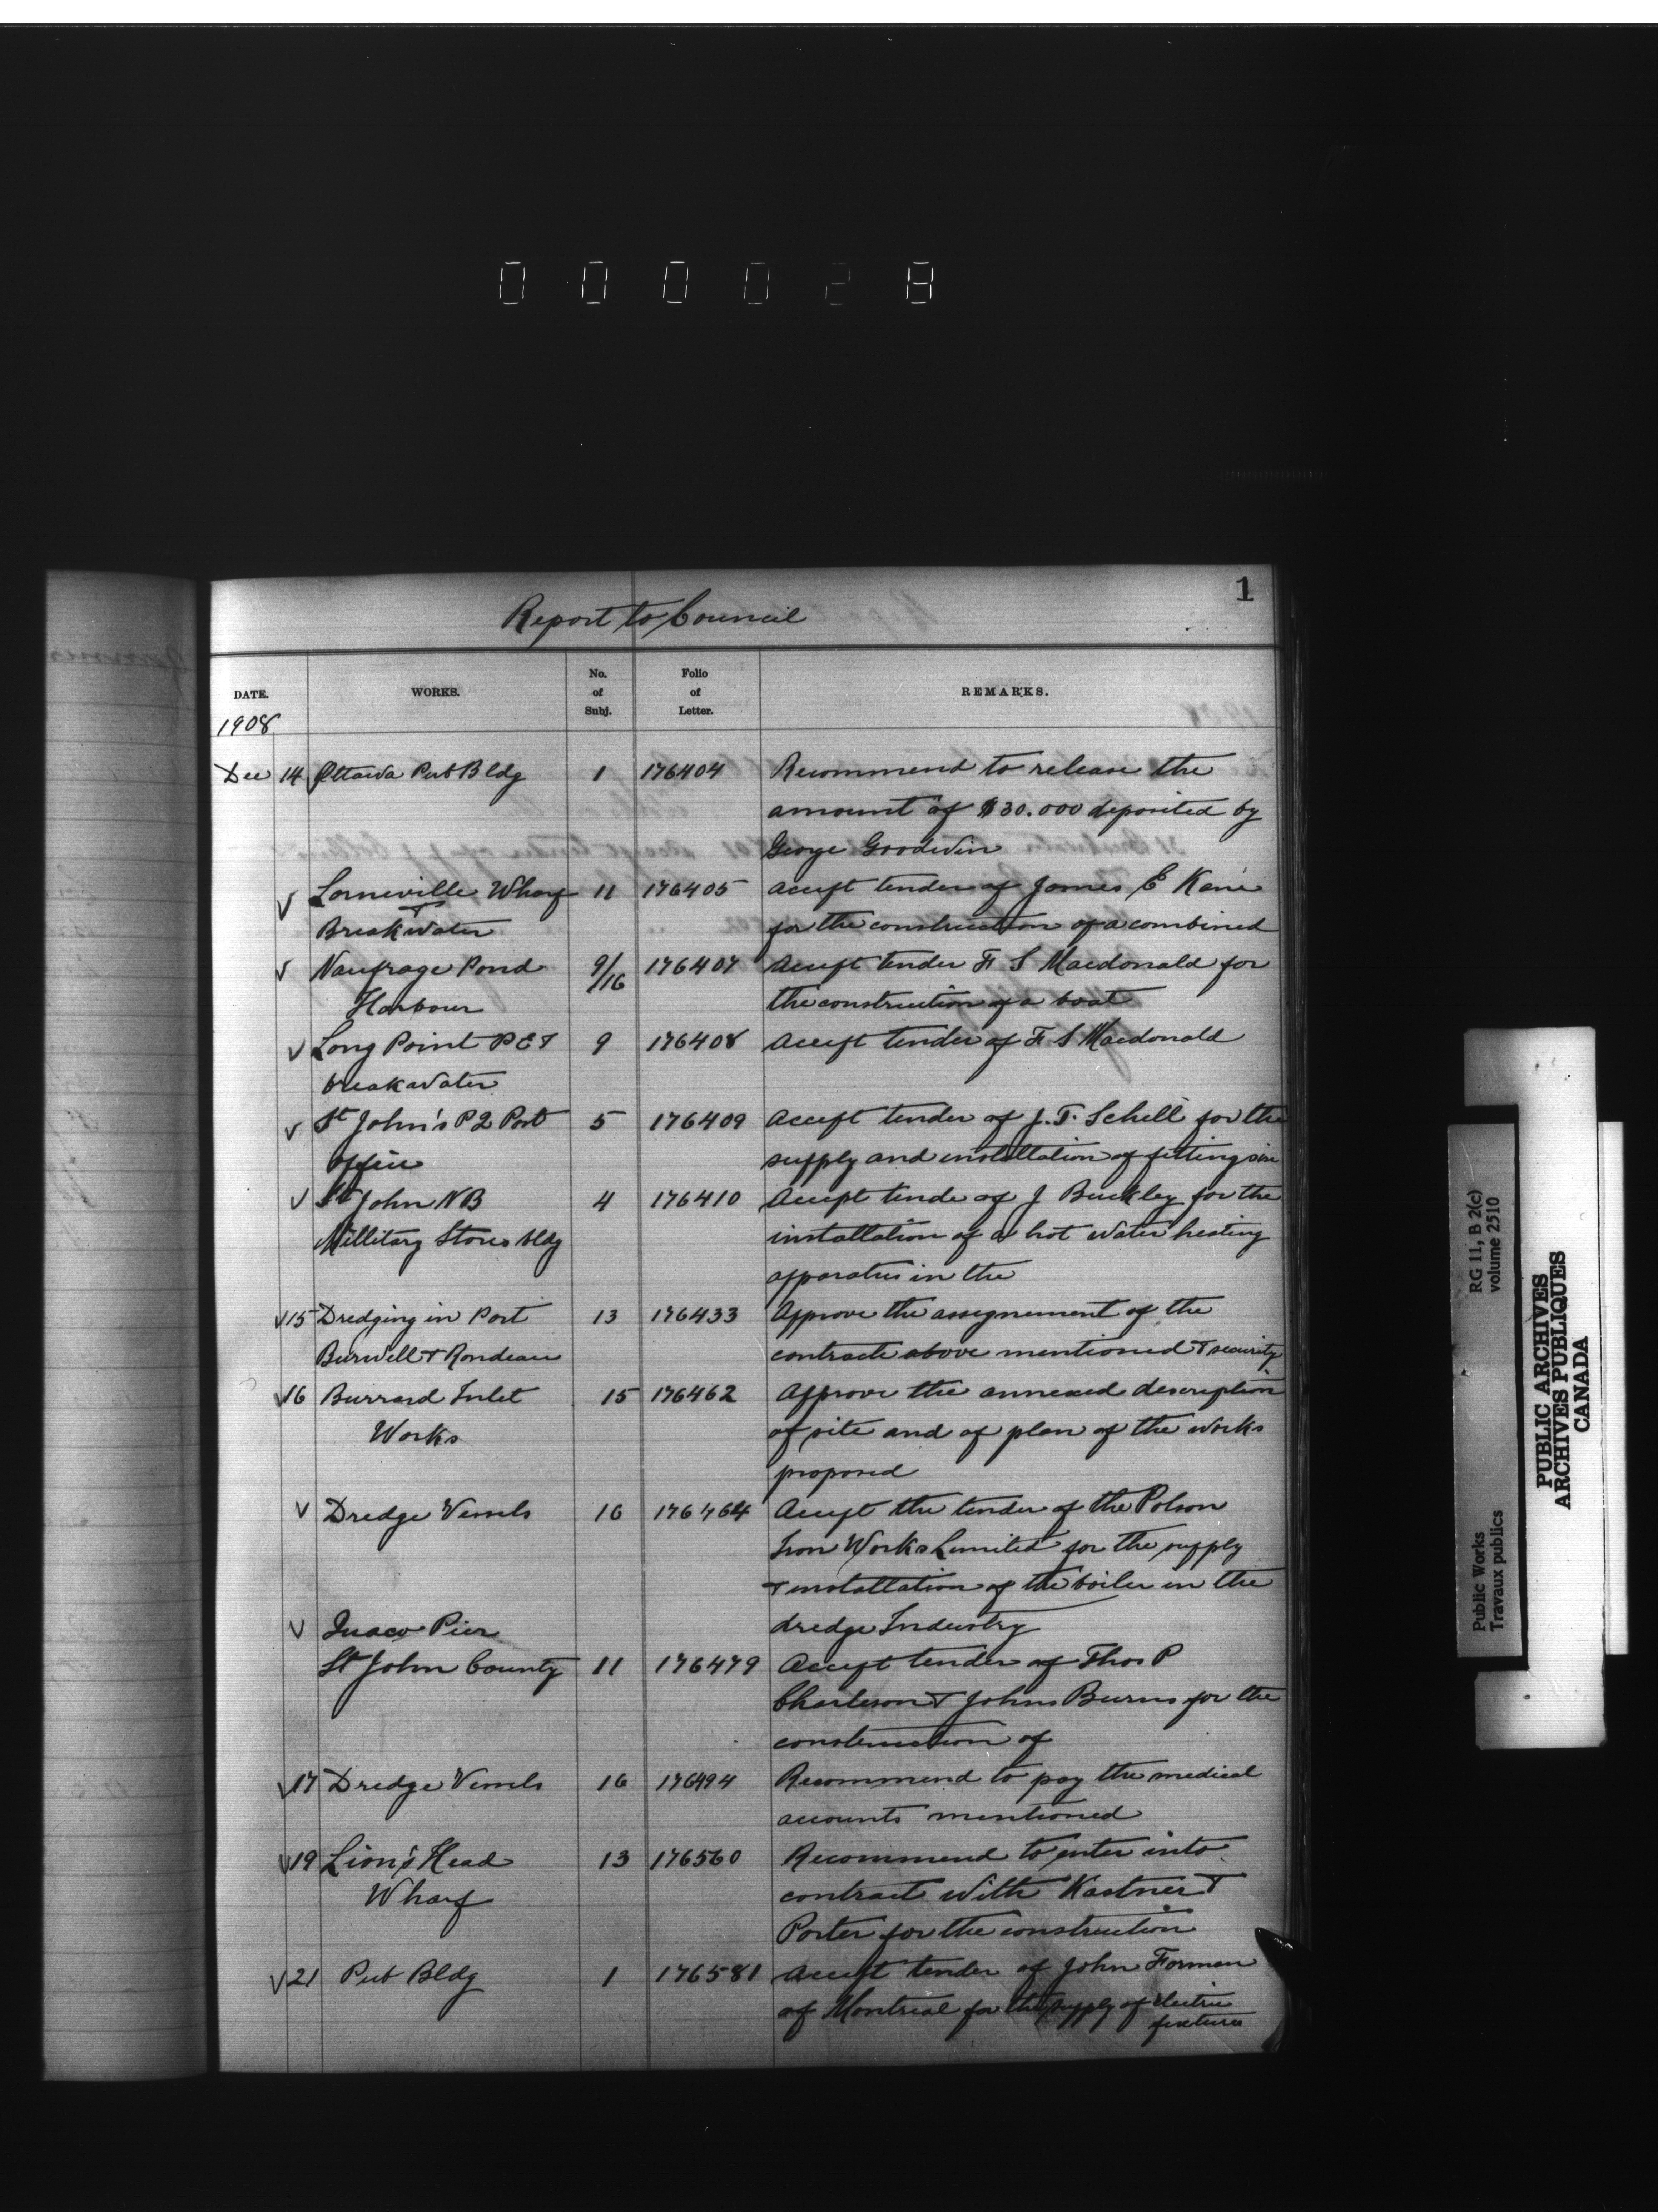 000028
1
Report to Council
DATE. WORKS. No. of Subj. Folio of Letter. REMARKS.
1908
Dec 14 Ottawa Pub Bldg 1 176404 Recommend to release the
amount of $30.000 deposited by
George Goodwin
√ Lorneville Wharf 11 176405 Accept tender of James E Kane
+
Breakwater for the construction of a combined
√ Naufrage Pond 9/16 176407 Accept tender F S Macdonald for
Harbour the construction of a boat
√ Long Point P E I 9 176408 Accept tender of F S Macdonald
breakwater
√ St John's P Q Post 5 176409 Accept tender of J. T. Schell for the
office supply and installation of fittings in
√ St John N B 4 176410 Accept tende of J Buckley for the
Millitary Stores bldg installation of a hot water heating
apparatus in the
√ 15 Dredging in Port 13 176433 Approve the assignement of the
Burwell + Rondeau contracts above mentioned + security
√ 16 Burrard Inlet 15 176462 Approve the annexed description
Works of site and of plan of the works
proposed
√ Dredge Vessels 16 176464 Accept the tender of the Polson
Iron Works Limited for the supply
+ installation of the boiler in the
√ Quaco Pier dredge Industry
St John County 11 176479 Accept tender of Thos P
Charleson + John Burns for the
construction of
√ 17 Dredge Vessels 16 176494 Recommend to pay the medical
accounts mentioned
√ 19 Lion's Head 13 176560 Recommend to enter into
Wharf contract with Kastner +
Porter for the construction
√ 21 Pub Bldg 1 176581 Accept tender of John Forman
of Montreal for the supply of electric
fixtures
RG 11, B 2(c)
volume 2510
Public Works
Travaux publics
PUBLIC ARCHIVES
ARCHIVES PUBLIQUES
CANADA